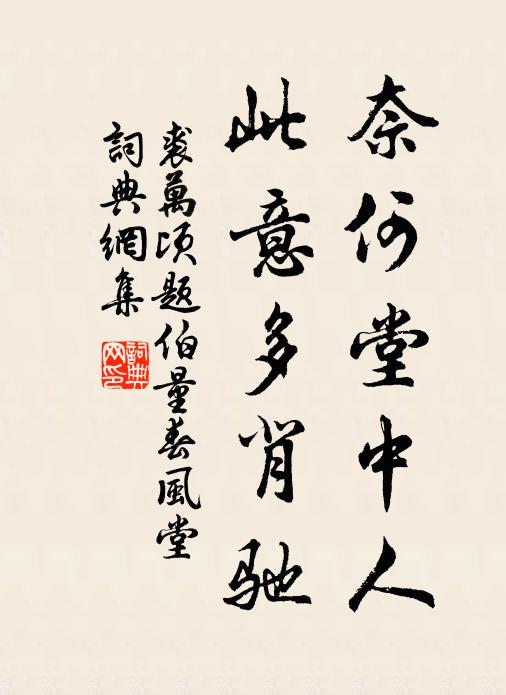 奈何堂中人
此意多背驰
裘萬頃题伯量春風堂
詞典網集
詞典网印